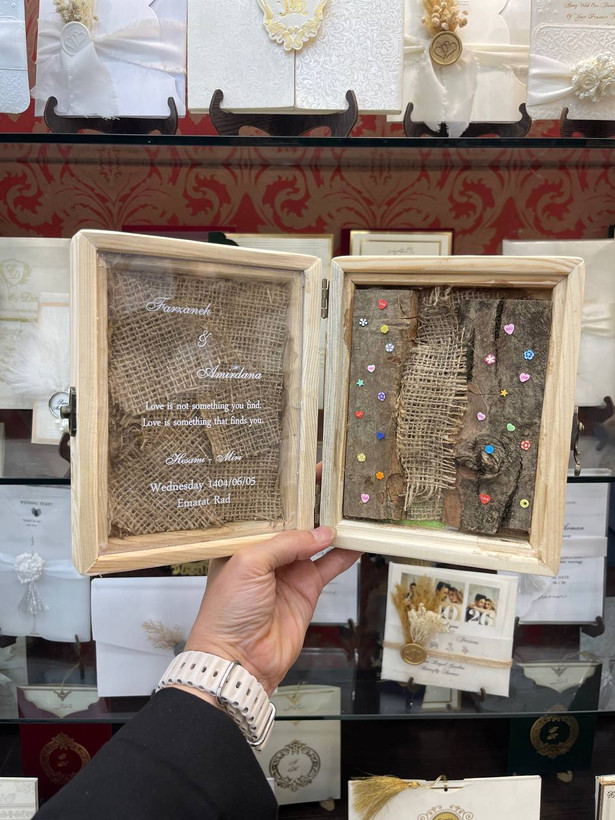 Farzaneh
&
Amirdana
Love is not something you find.
Love is something that finds you.
Hesami - Miri
Wednesday 1404/06/05
Emarat Rad